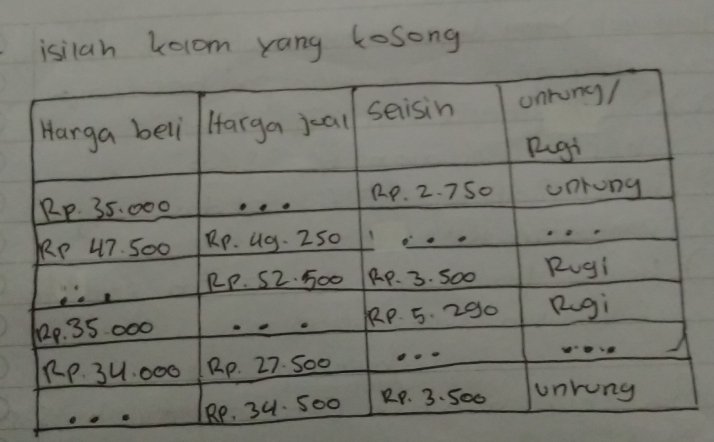 isilah kolom yang kosong
Harga beli Harga jual Selisih untung/
Rugi
Rp. 35.000 ... Rp. 2.750 untung
Rp 47.500 Rp. 49.250 ... ...
... Rp. 52.500 Rp. 3.500 Rugi
Rp. 35.000 ... Rp. 5.290 Rugi
Rp. 34.000 Rp. 27.500 ... ....
... Rp. 34.500 Rp. 3.500 untung